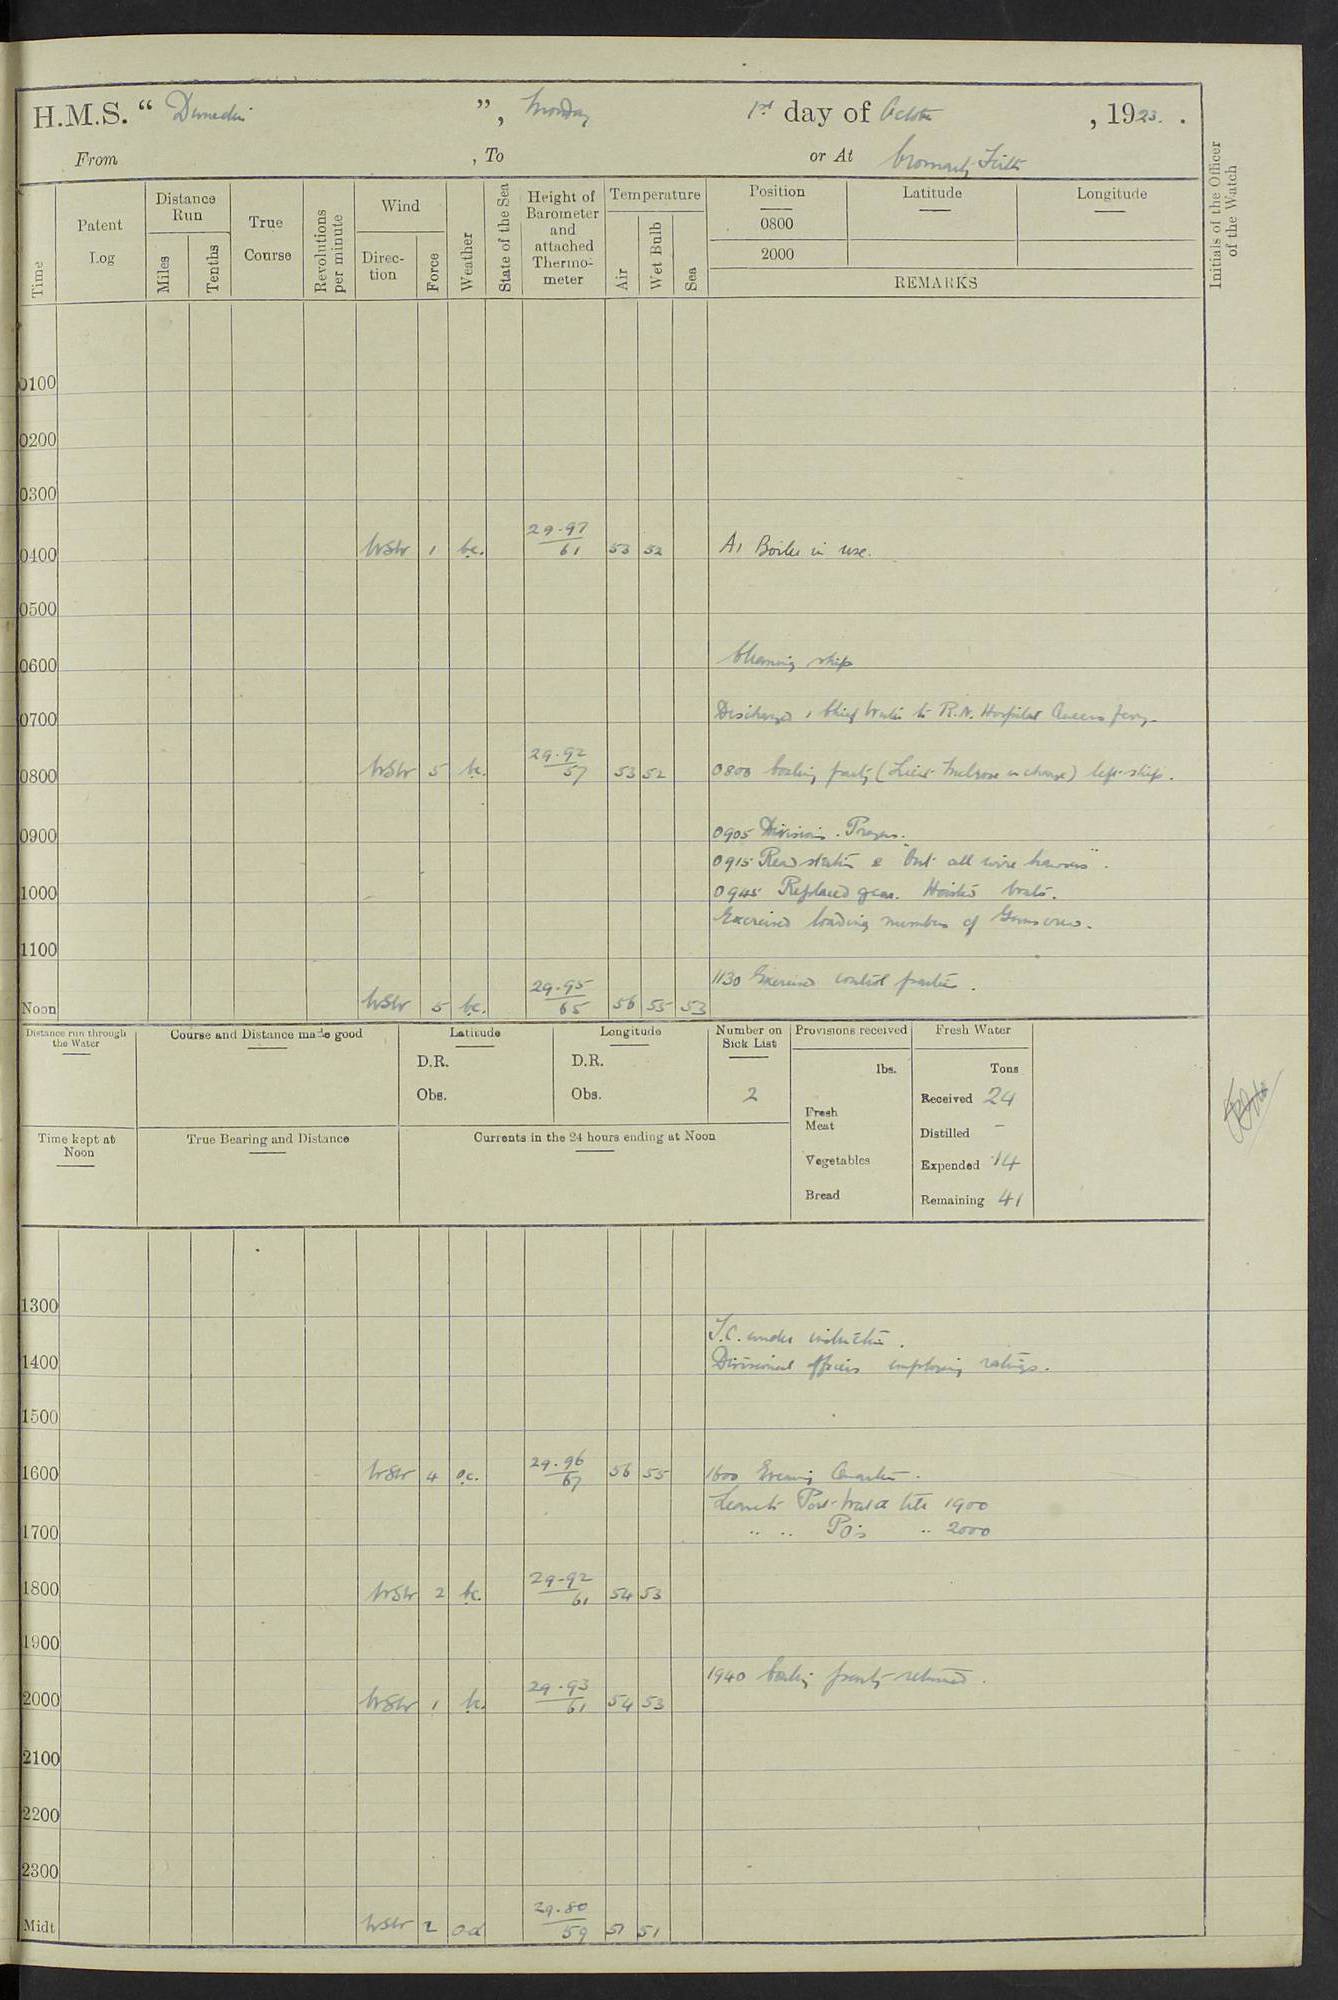 H.M.S. “ Dunedin ”, Monday 1st day of October, 1923.
From , To or At Cromarty Firth
Initials of the Officer of the Watch
Time
Patent Log
Distance Run
Miles
Tenths
True Course
Revolutions per minute
Wind
Direc-tion
Force
Weather
State of the Sea
Height of Barometer and attached Thermo-meter
Temperature
Air
Wet Bulb
Sea
Position Latitude Longitude
0800
2000
REMARKS
0100
0200
0300
0400 WSW 1 bc. 29.97/61 53 52 A1 Boiler in use.
0500
0600 Cleaning ship
0700 Discharged 1 Chief Writer to R.N. Hospital Queens Ferry.
0800 WSW 5 bc. 29.92/57 53 52 0800 boating party (Lieut Melrose in charge) left ship.
0900 0905 Divisions. Prayers.
0915 Read station & "Out all wire hawsers".
1000 0945 Replaced gear. Hoisted boats.
Exercised loading numbers of Guns crews.
1100
1130 Exercised control parties.
Noon WSW 5 bc. 29.95/65 56 55 53
Distance run through the Water
Course and Distance made good
Latitude
D.R.
Obs.
Longitude
D.R.
Obs.
Number on Sick List
2
Provisions received
lbs.
Fresh Meat
Vegetables
Bread
Fresh Water
Tons
Received 24
Distilled –
Expended 14
Remaining 41
Time kept at Noon
True Bearing and Distance
Currents in the 24 hours ending at Noon
1300
T.C. under instruction.
1400 Divisional officers employing ratings.
1500
1600 WSW 4 oc. 29.96/67 56 55 1600 Evening Quarters.
Leave to Port Watch till 1900
1700 " " POs " 2000
1800 WSW 2 bc. 29.92/61 54 53
1900
1940 boating party returned.
2000 WSW 1 bc. 29.93/61 54 53
2100
2200
2300
Midt WSW 2 od 29.80/59 51 51